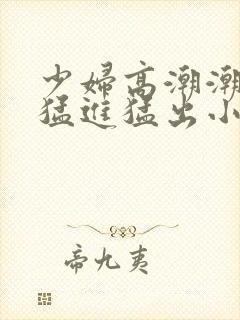 少婦高潮潮
猛進猛出小
帝九夷